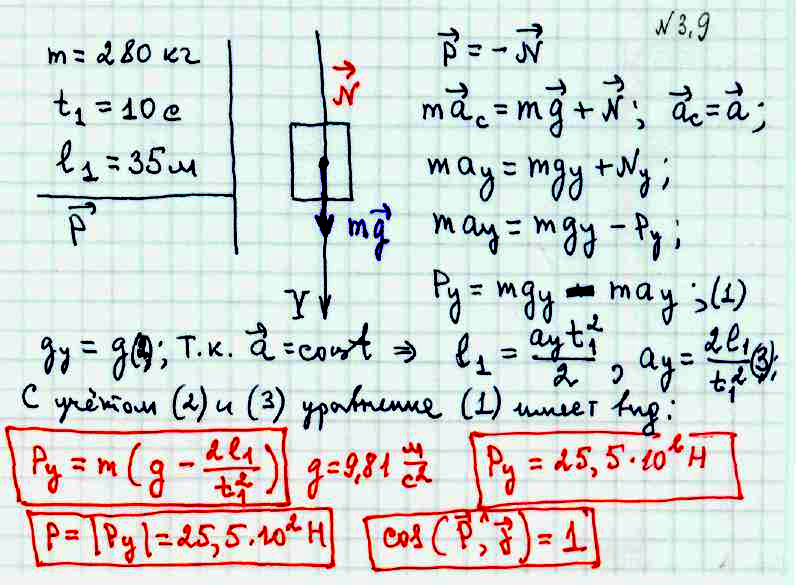 N 3,9
m = 280 кг
t₁ = 10 с
l₁ = 35 м
P⃗
N⃗
mg⃗
Y
P⃗ = −N⃗
ma⃗c = mg⃗ + N⃗; a⃗c = a⃗;
may = mgy + Ny;
may = mgy − Py;
Py = mgy − may; (1)
gy = g(2); т.к. a⃗ = const ⇒ l₁ = ayt₁²/2, ay = 2l₁/t₁² (3);
С учётом (2) и (3) уравнение (1) имеет вид:
Py = m(g − 2l₁/t₁²) g = 9,81 м/с² Py = 25,5·10² Н
P = |Py| = 25,5·10² Н cos(P⃗,^j⃗) = 1